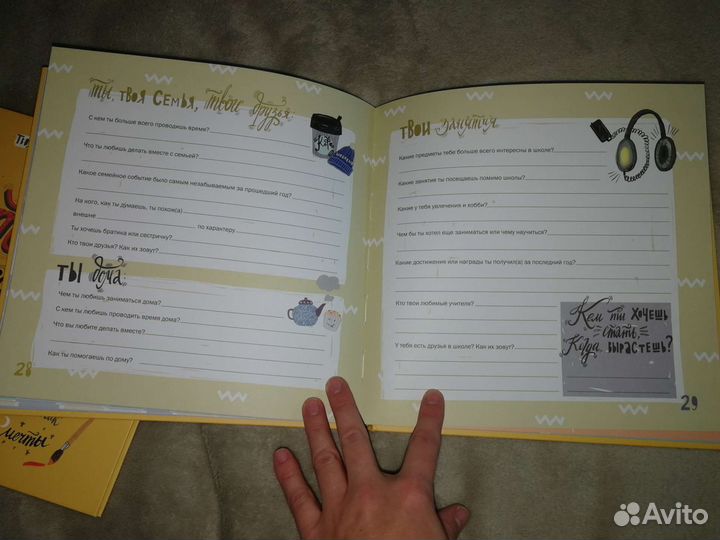 Ты, твоя семья, твои друзья:
С кем ты больше всего проводишь время?
Что ты любишь делать вместе с семьей?
Какое семейное событие было самым незабываемым за прошедший год?
На кого, как ты думаешь, ты похож(а)
внешне по характеру
Ты хочешь братика или сестричку?
Кто твои друзья? Как их зовут?
Ты дома:
Чем ты любишь заниматься дома?
С кем ты любишь проводить время дома?
Что вы любите делать вместе?
Как ты помогаешь по дому?
28
Твои занятия
Какие предметы тебе больше всего интересны в школе?
Какие занятия ты посещаешь помимо школы?
Какие у тебя увлечения и хобби?
Чем бы ты хотел еще заниматься или чему научиться?
Какие достижения или награды ты получил(а) за последний год?
Кто твои любимые учителя?
У тебя есть друзья в школе? Как их зовут?
Кем ты хочешь
стать,
когда вырастешь?
29
мечты
Avito